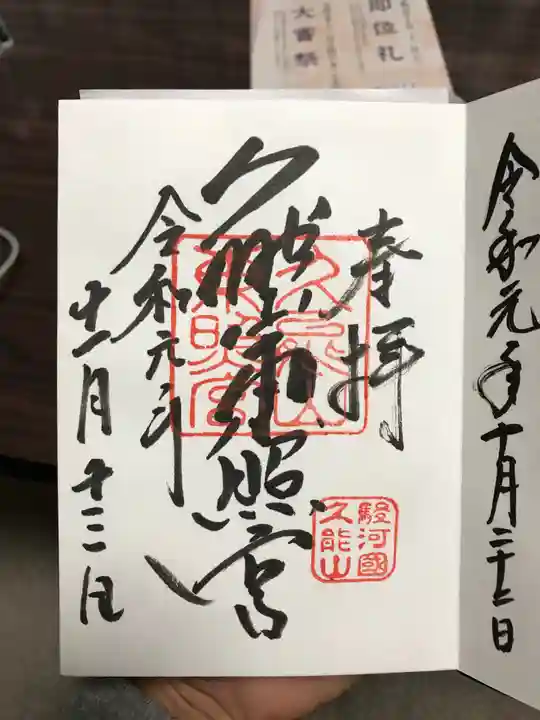 即位礼
大嘗祭
令和元年十月二十二日
奉拝
久能山東照宮
令和元年
十一月十二日
久能山
東照宮
駿河國
久能山